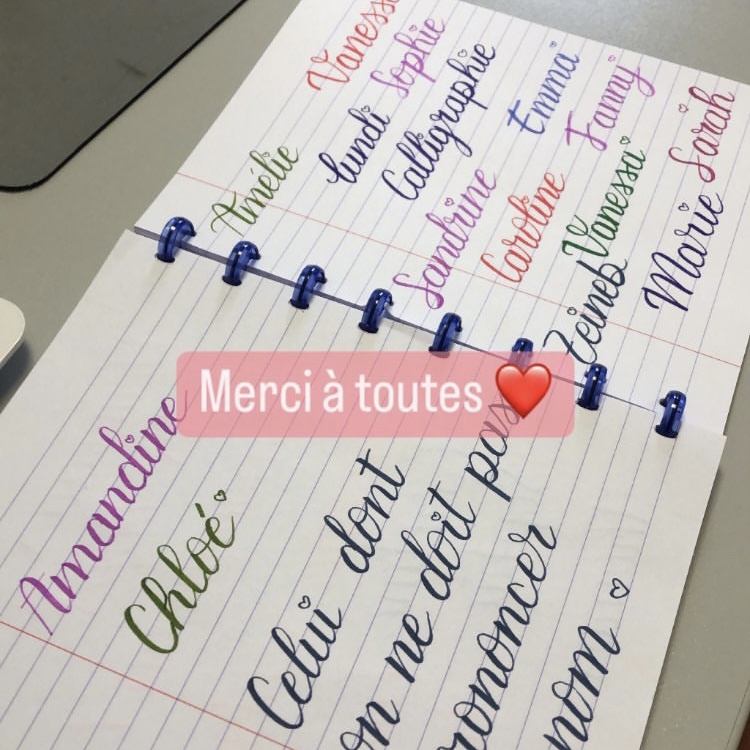 Vanessa
Sophie
lundi
Calligraphie
Amélie
Emma
Fanny
Sarah
Sandrine
Caroline
Vanessa
Marie
Zeineb
Merci à toutes ❤️
Amandine
Chloé
Celui dont
on ne doit pas
prononcer
nom